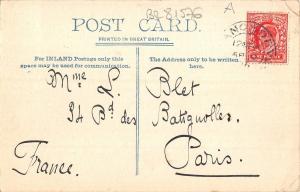 BR81576 A
POST CARD.
PRINTED IN GREAT BRITAIN.
For INLAND Postage only this space may be used for communication.
The Address only to be written here.
Mme L. Blet
94 Bd des Batignolles.
Paris.
France.